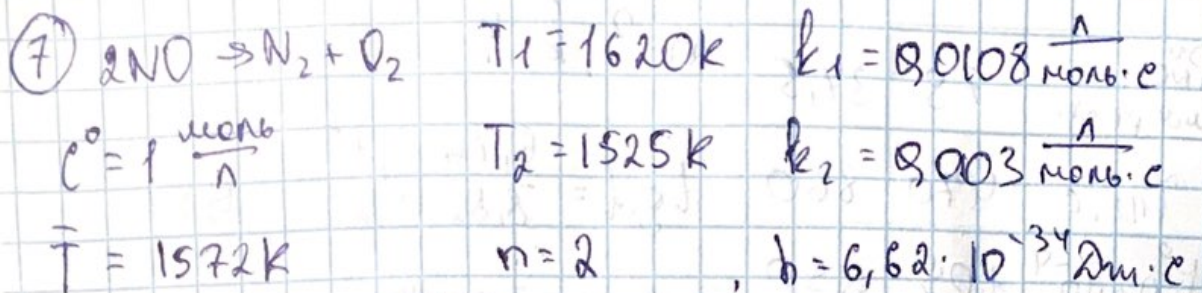 ⑦ 2NO → N₂ + O₂ T₁ = 1620K k₁ = 0,0108 л/моль·с
C° = 1 моль/л T₂ = 1525K k₂ = 0,003 л/моль·с
T̄ = 1572K n = 2, h = 6,62·10⁻³⁴ Дж·с